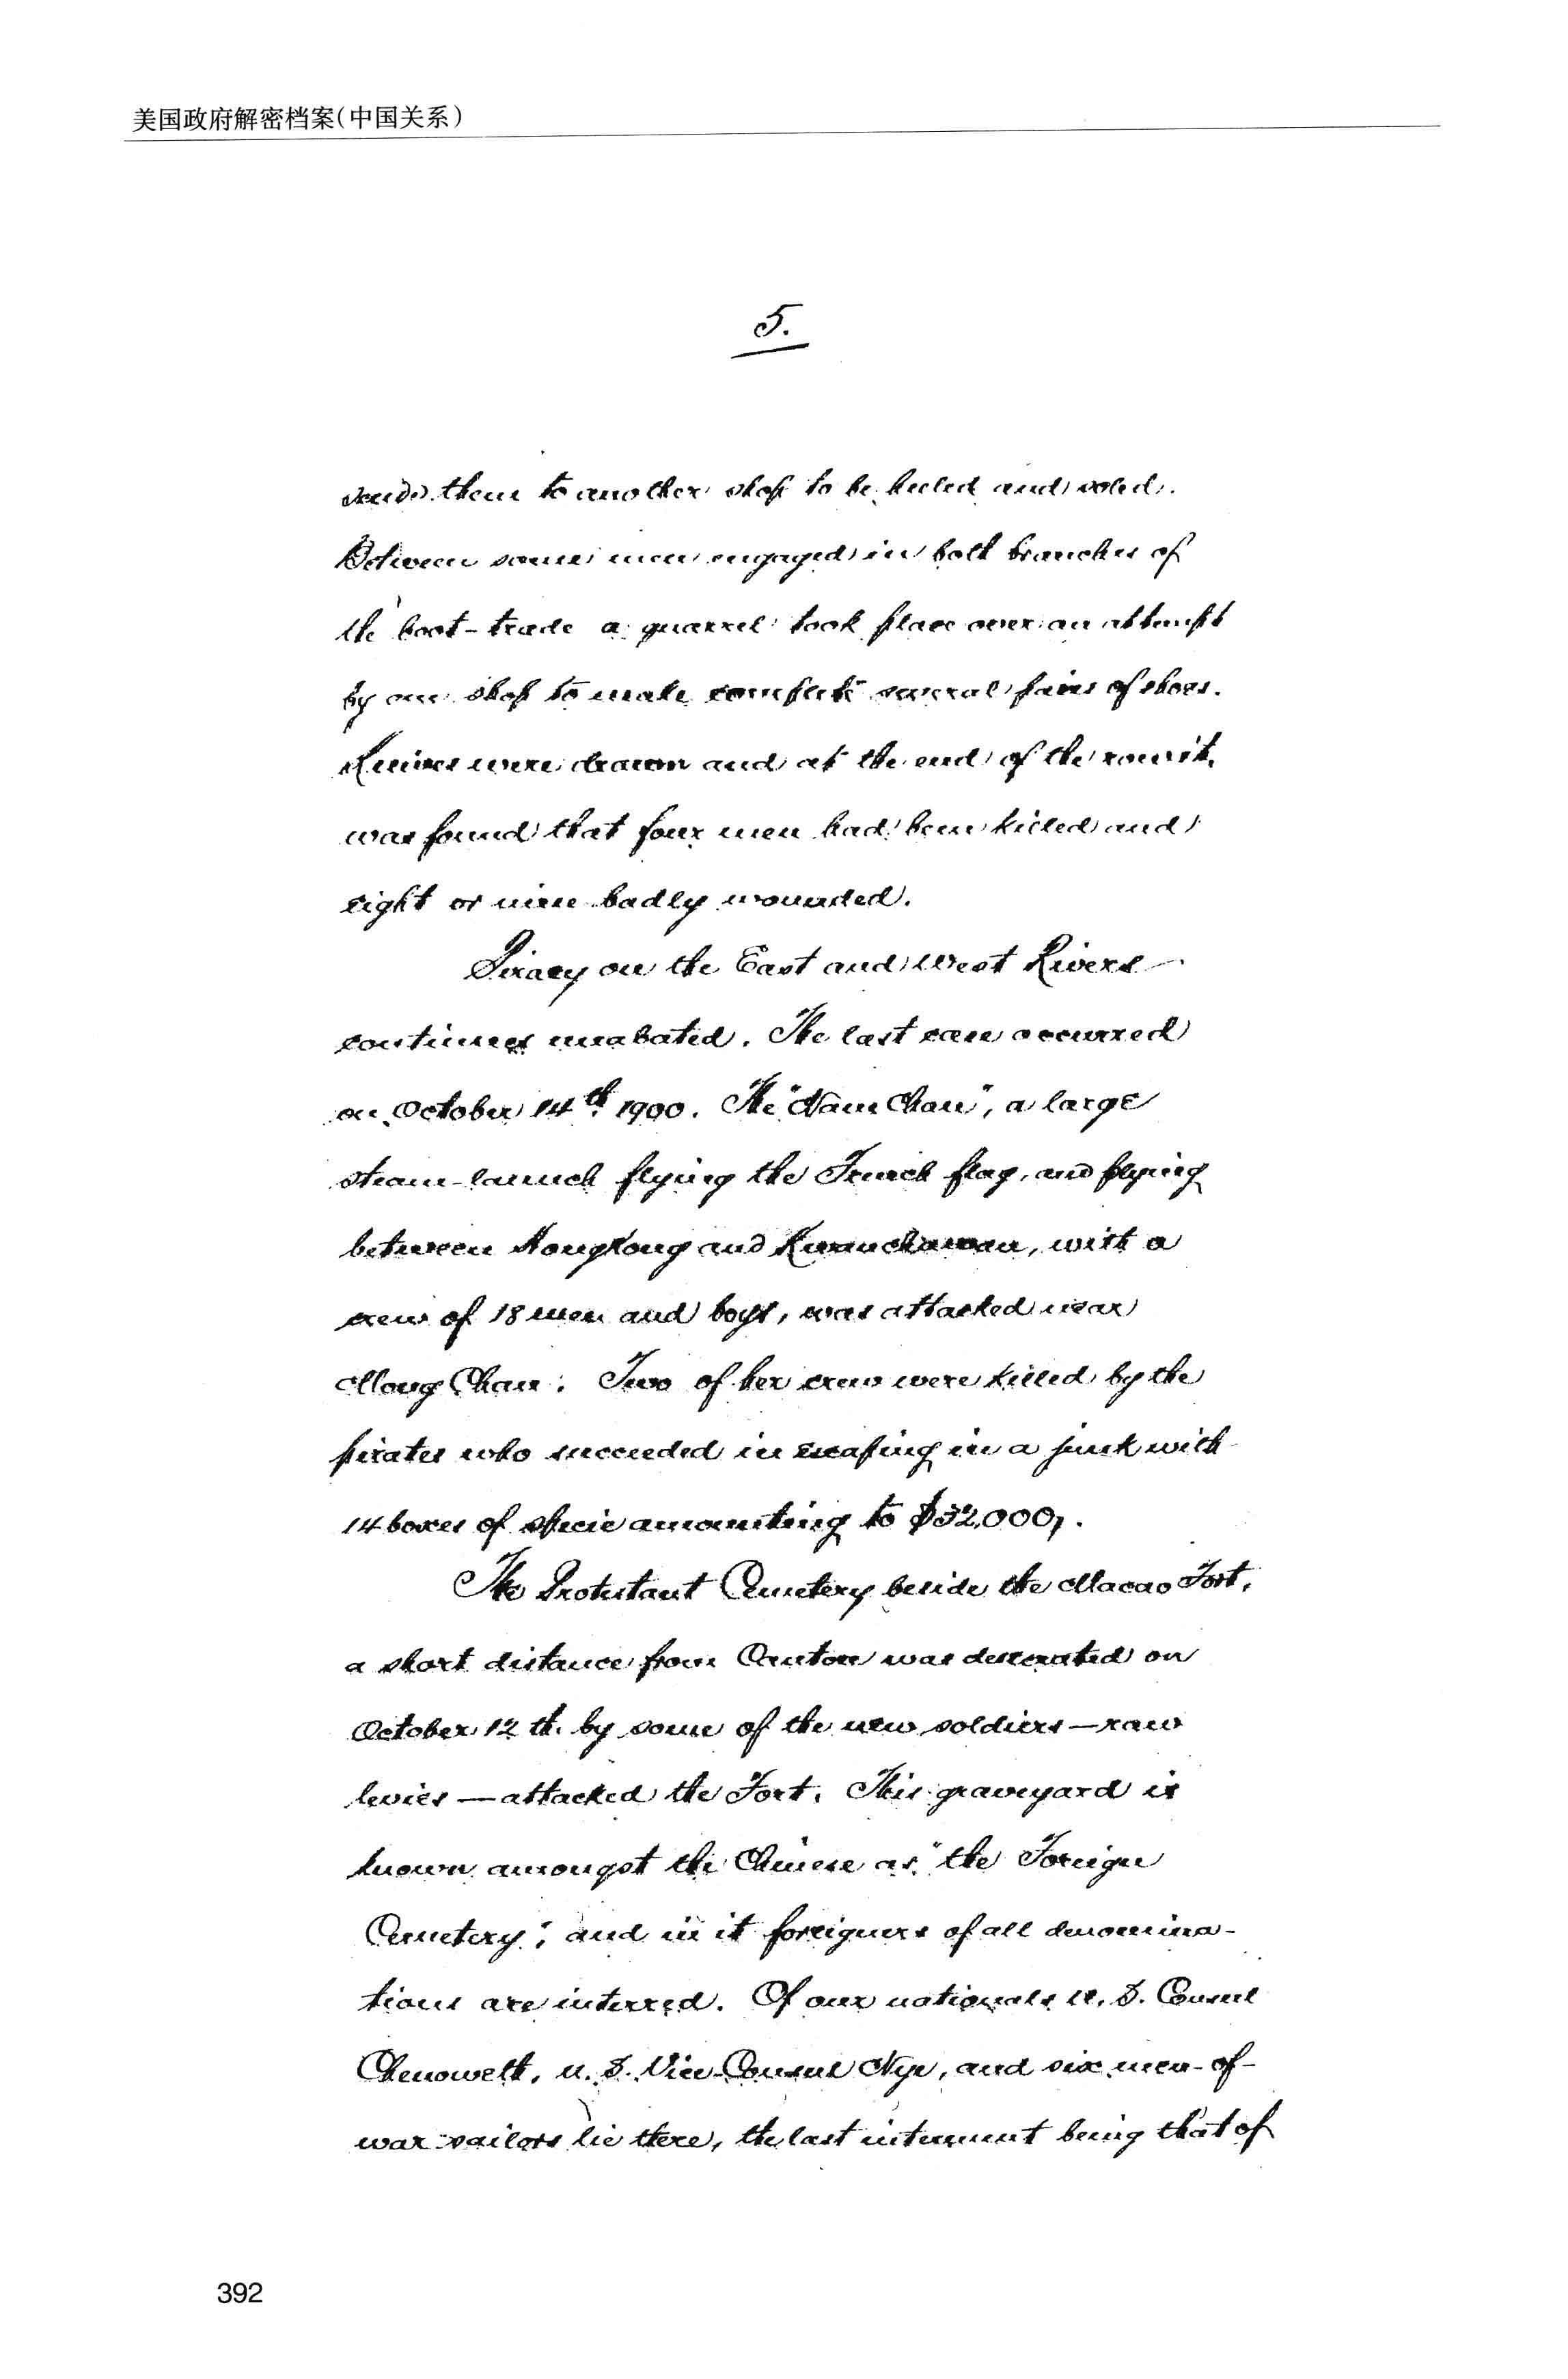 美国政府解密档案(中国关系)
5.
sends them to another shop to be heeled and soled.
Between some men engaged in both branches of
the boot-trade a quarrel took place over an attempt
by one shop to make complete several pairs of shoes.
Knives were drawn and at the end of the row it
was found that four men had been killed and
eight or nine badly wounded.
Piracy on the East and West Rivers
continues unabated. The last case occurred
on October 14th. 1900. The "Nam Chau", a large
steam-launch flying the French flag, and plying
between Hongkong and Kwanchauwan, with a
crew of 18 men and boys, was attacked near
Mong Chau. Two of her crew were killed by the
pirates who succeeded in escaping in a junk with
14 boxes of specie amounting to $32,000,.
The Protestant Cemetery beside the Macao Fort,
a short distance from Canton was desecrated on
October 12 th. by some of the new soldiers—raw
levies—attached the Fort. This graveyard is
known amongst the Chinese as "the Foreign
Cemetery", and in it foreigners of all denomina-
tions are interred. Of our nationals U. S. Consul
Chenoweth, U. S. Vice-Consul Nye, and six men-of-
war sailors lie there, the last interment being that of
392